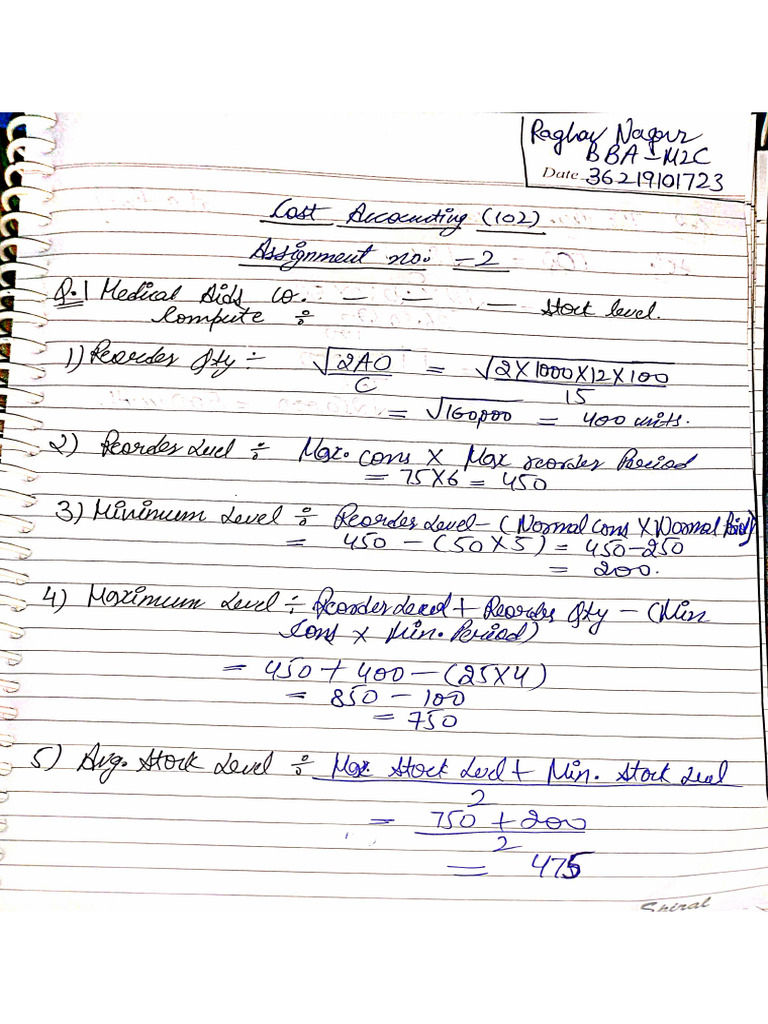 Raghav Nagpur
BBA-M2C
Date 36219101723
Cost Accounting (102)
Assignment no: -2
Q.1 Medical Aids Co. — — — Stock level.
Compute ÷
1) Reorder Qty ÷ √2AO/C = √2×1000×12×100/15
= √160,000 = 400 units.
2) Reorder Level ÷ Max. cons × Max reorder Period
= 75×6 = 450
3) Minimum Level ÷ Reorder Level - (Normal Cons × Normal Period)
= 450 - (50×5) = 450-250
= 200.
4) Maximum Level ÷ Reorder Level + Reorder Qty - (Min
Cons × Min. Period)
= 450 + 400 - (25×4)
= 850 - 100
= 750
5) Avg. Stock Level ÷ Max Stock Level + Min. Stock Level
2
= 750 + 200
2
= 475
Spiral